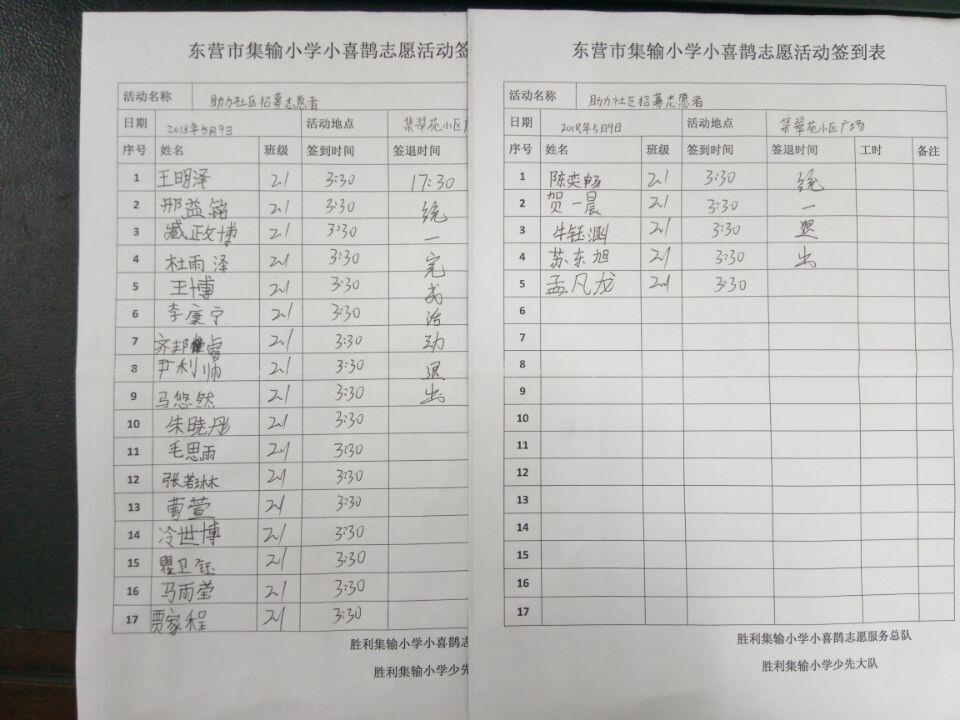 东营市集输小学小喜鹊志愿活动签
活动名称 助力社区招募志愿者
日期 2018年5月9日 活动地点 集翠苑小区广
序号 姓名 班级 签到时间 签退时间
1 王明泽 2.1 3:30 17:30
2 邢益铭 2.1 3:30 统
3 臧政博 2.1 3:30 一
4 杜雨泽 2.1 3:30 完
5 王博 2.1 3:30 成
6 李康宁 2.1 3:30 活
7 齐邦睿 2.1 3:30 动
8 尹利帅 2.1 3:30 退
9 马悠然 2.1 3:30 出
10 朱晓彤 2.1 3:30
11 毛思雨 2.1 3:30
12 张若琳 2.1 3:30
13 曹萱 2.1 3:30
14 冷世博 2.1 3:30
15 瞿卫钰 2.1 3:30
16 马雨莹 2.1 3:30
17 贾家程 2.1 3:30
胜利集输小学小喜鹊志
胜利集输小学少先
东营市集输小学小喜鹊志愿活动签到表
活动名称 助力社区招募志愿者
日期 2018年5月9日 活动地点 集翠苑小区广场
序号 姓名 班级 签到时间 签退时间 工时 备注
1 陈奕畅 2.1 3:30 统
2 贺一晨 2.1 3:30 一
3 牛钰涵 2.1 3:30 退
4 苏东旭 2.1 3:30 出
5 孟凡龙 2.1 3:30
6
7
8
9
10
11
12
13
14
15
16
17
胜利集输小学小喜鹊志愿服务总队
胜利集输小学少先大队